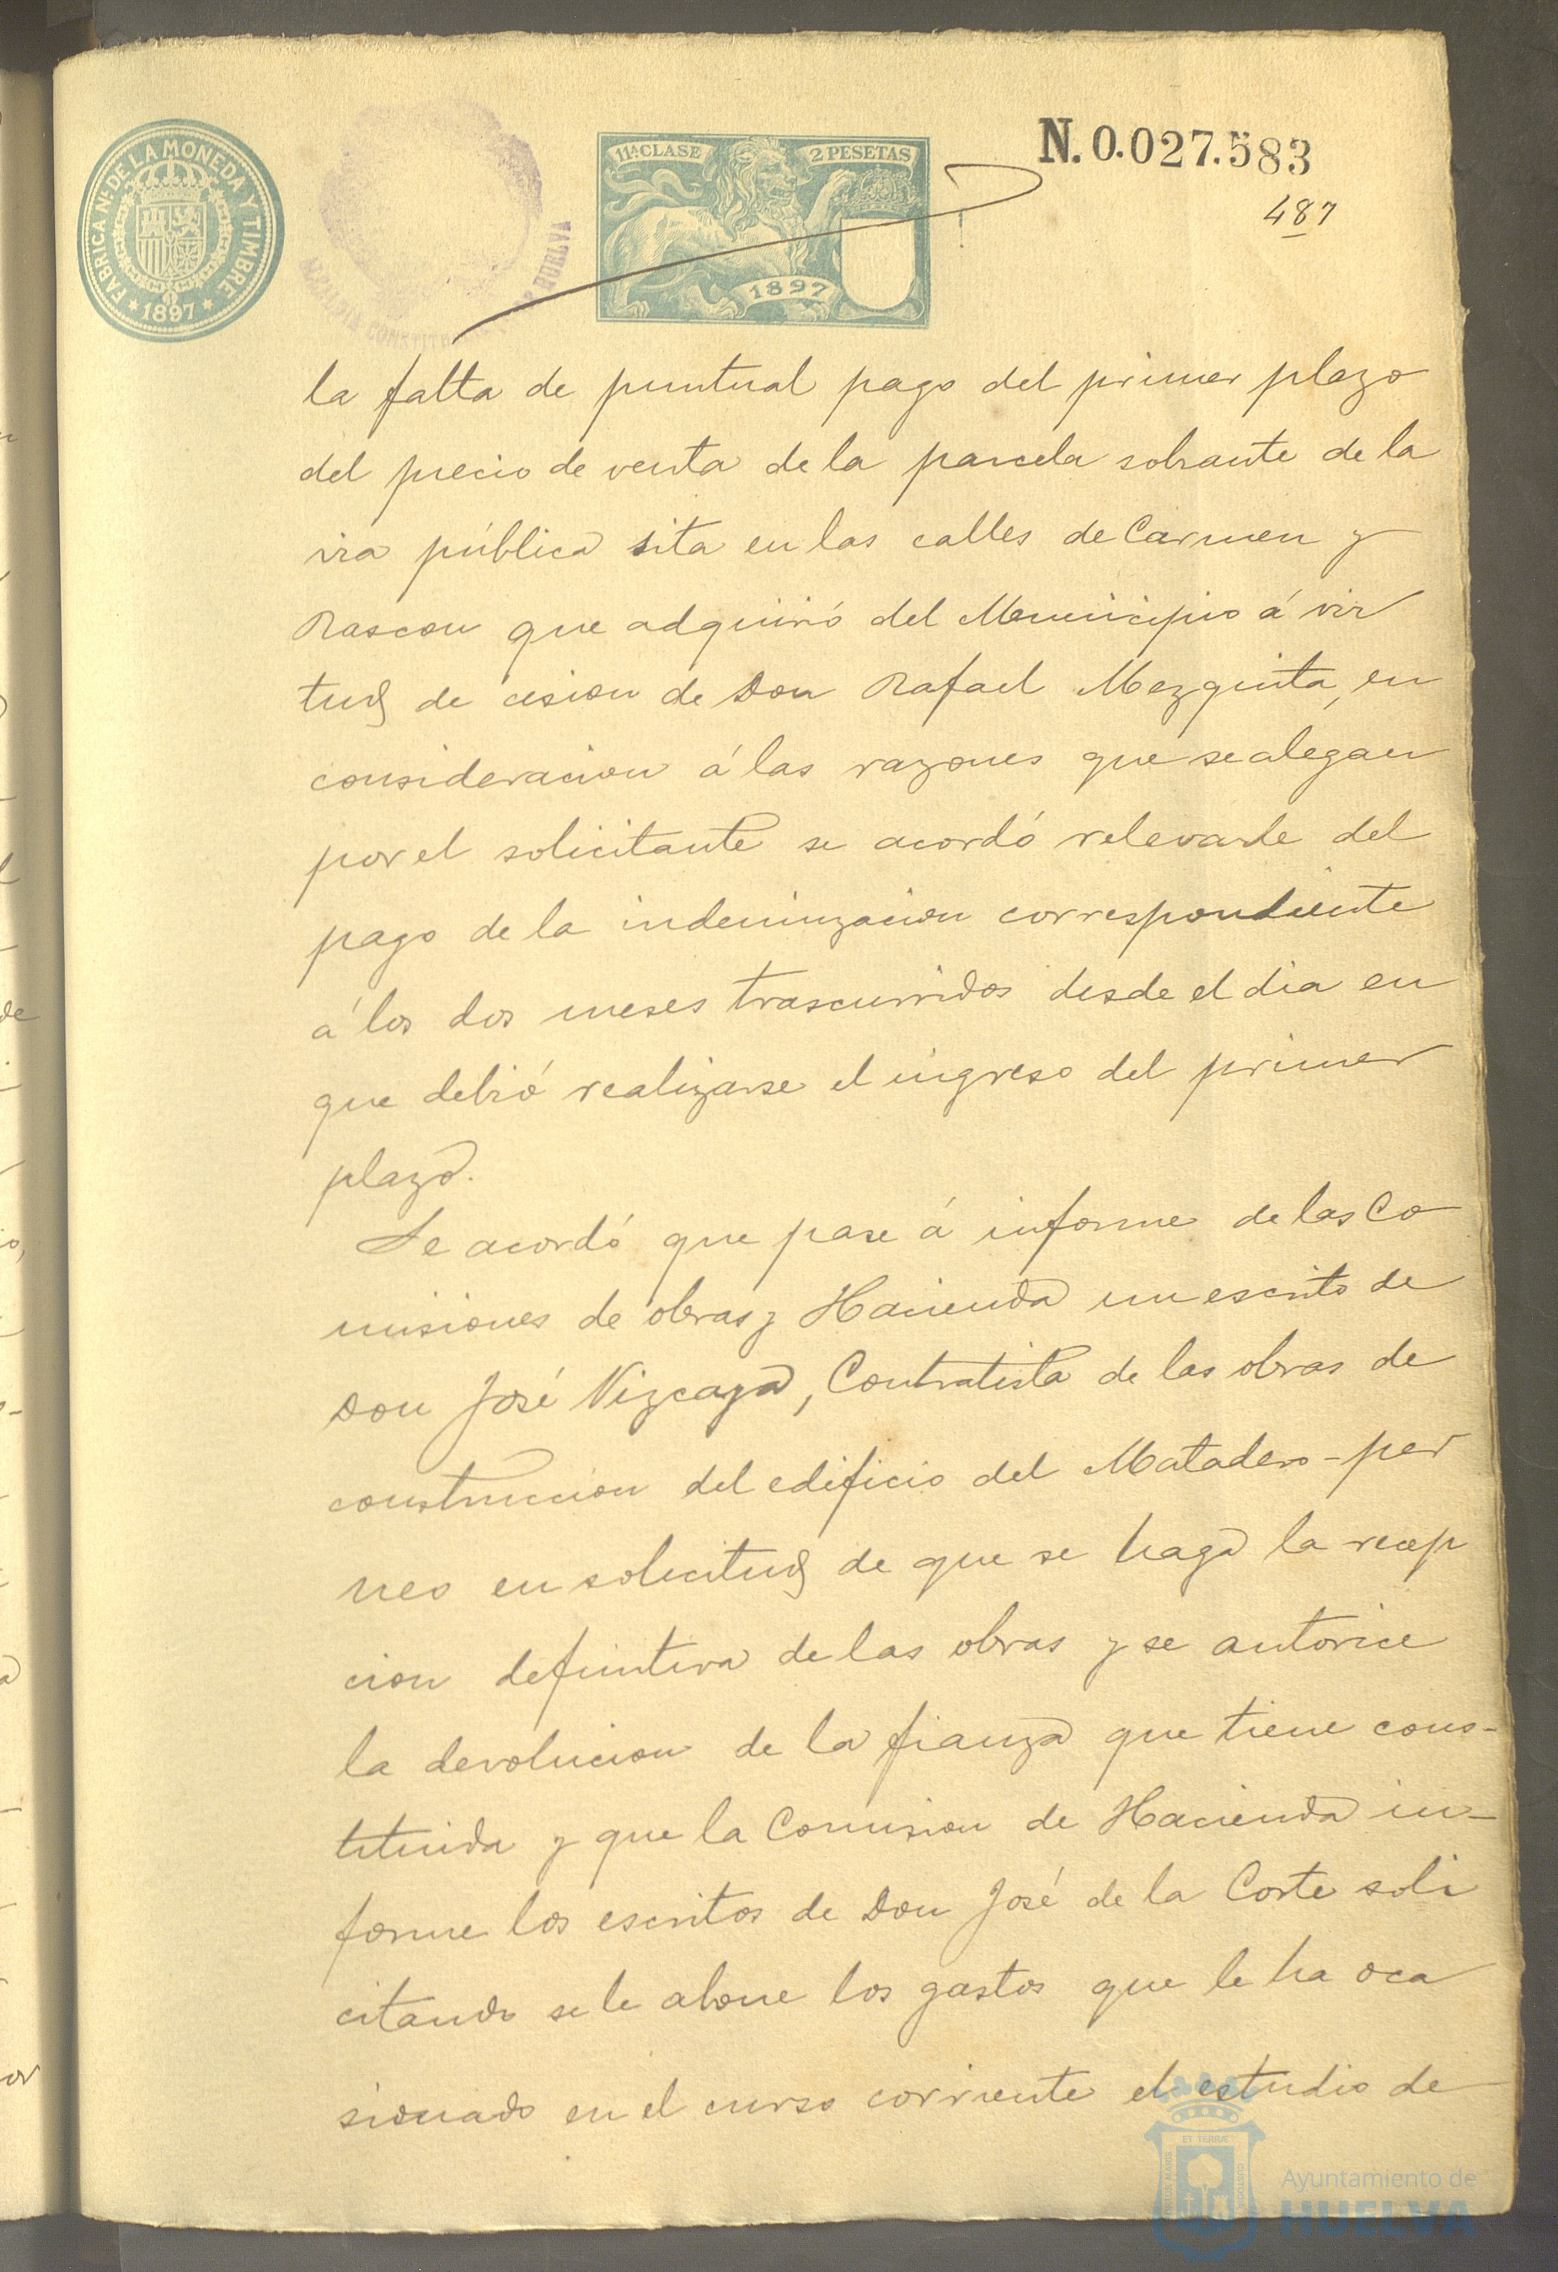 FABRICA Nº DE LA MONEDA Y TIMBRE
* 1897 *
ALCALDIA CONSTITUCIONAL DE HUELVA
11ª CLASE
2 PESETAS
1897
N. 0.027.583
487
la falta de puntual pago del primer plazo
del precio de venta de la parcela sobrante de la
via pública sita en las calles de Carmen y
Rascon que adquirió del Municipio á vir
tud de cesion de Don Rafael Mezquita, en
consideracion á las razones que se alegan
por el solicitante se acordó relevarle del
pago de la indemnizacion correspondiente
á los dos meses trascurridos desde el dia en
que debió realizarse el ingreso del primer
plazo.
Se acordó que pase á informe de las Co
misiones de obras y Hacienda un escrito de
Don José Vizcaya, Contratista de las obras de
construccion del edificio del Matadero-per
neo en solicitud de que se haga la recep
cion definitiva de las obras y se autorice
la devolucion de la fianza que tiene cons-
tituida y que la Comision de Hacienda in-
forme los escritos de Don José de la Corte soli
citando se le abone los gastos que le ha oca
sionado en el curso corriente el estudio de
ET TERRÆ
PORTUS MARIS
CUSTODIA
Ayuntamiento de
HUELVA